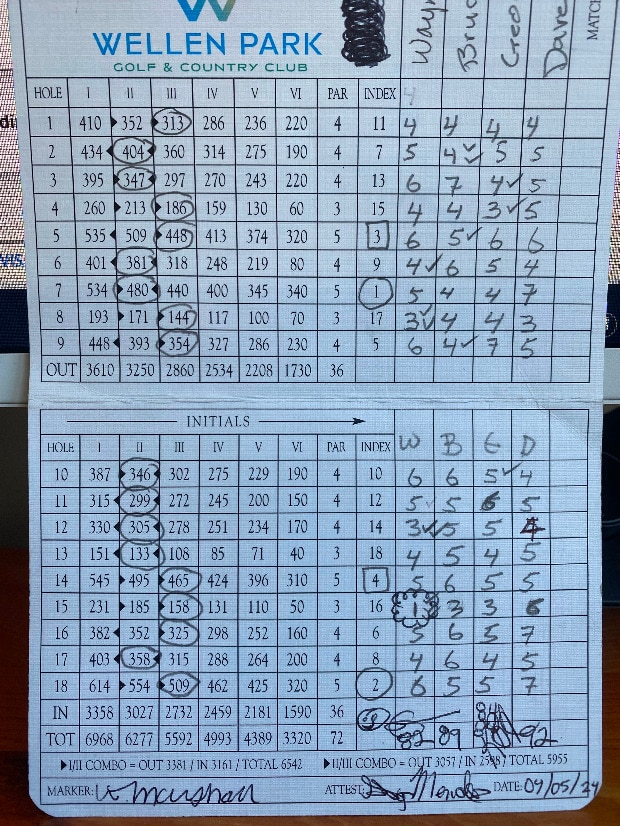 WELLEN PARK
GOLF & COUNTRY CLUB
Wayn Bruc Greg Dave MATCH
HOLE I II III IV V VI PAR INDEX 4
1 410 352 313 286 236 220 4 11 4 4 4 4
2 434 404 360 314 275 190 4 7 5 4✓ 5 5
3 395 347 297 270 243 220 4 13 6 7 4✓ 5
4 260 213 186 159 130 60 3 15 4 4 3✓ 5
5 535 509 448 413 374 320 5 3 6 5✓ 6 6
6 401 381 318 248 219 80 4 9 4✓ 6 5 4
7 534 480 440 400 345 340 5 1 5 4 4 7
8 193 171 144 117 100 70 3 17 3✓ 4 4 3
9 448 393 354 327 286 230 4 5 6 4✓ 7 5
OUT 3610 3250 2860 2534 2208 1730 36
INITIALS
HOLE I II III IV V VI PAR INDEX W B G D
10 387 346 302 275 229 190 4 10 6 6 5✓ 4
11 315 299 272 245 200 150 4 12 5 5 6 5
12 330 305 278 251 234 170 4 14 3✓ 5 5 4
13 151 133 108 85 71 40 3 18 4 5 4 5
14 545 495 465 424 396 310 5 4 5 6 5 5
15 231 185 158 131 110 50 3 16 1 3 3 6
16 382 352 325 298 252 160 4 6 5 6 5 7
17 403 358 315 288 264 200 4 8 4 6 4 5
18 614 554 509 462 425 320 5 2 6 5 5 7
IN 3358 3027 2732 2459 2181 1590 36 84
TOT 6968 6277 5592 4993 4389 3320 72 82 89 92
I/II COMBO = OUT 3381 / IN 3161 / TOTAL 6542 II/III COMBO = OUT 3057 / IN 2598 / TOTAL 5955
MARKER: W Marshall ATTEST: DATE: 09/05/24